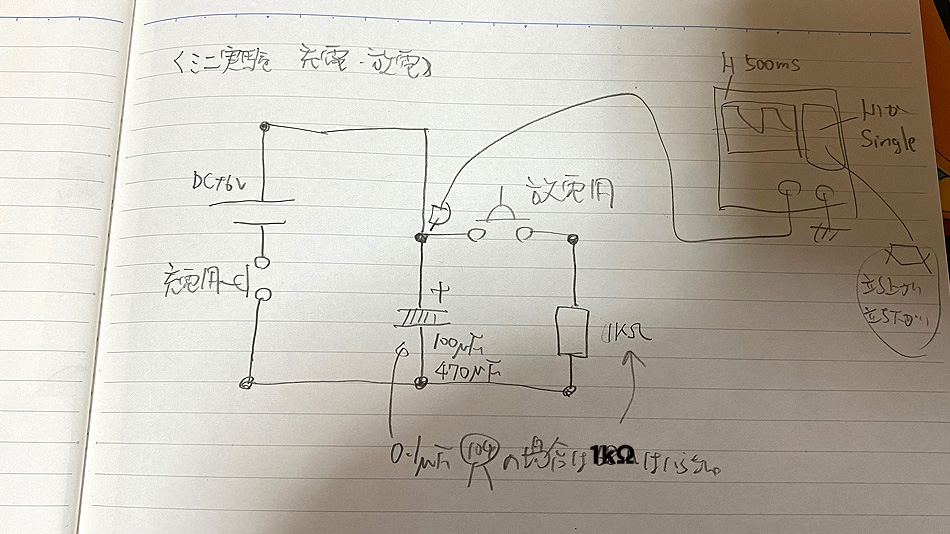 〈ミニ実験 充電・放電〉
H 500ms
トリガ
Single
DC+6V
放電用
充電用
+
1KΩ
立ち上がり
立ち下がり
100μF
470μF
0.1μF 104 の場合は 1kΩ はいらない。